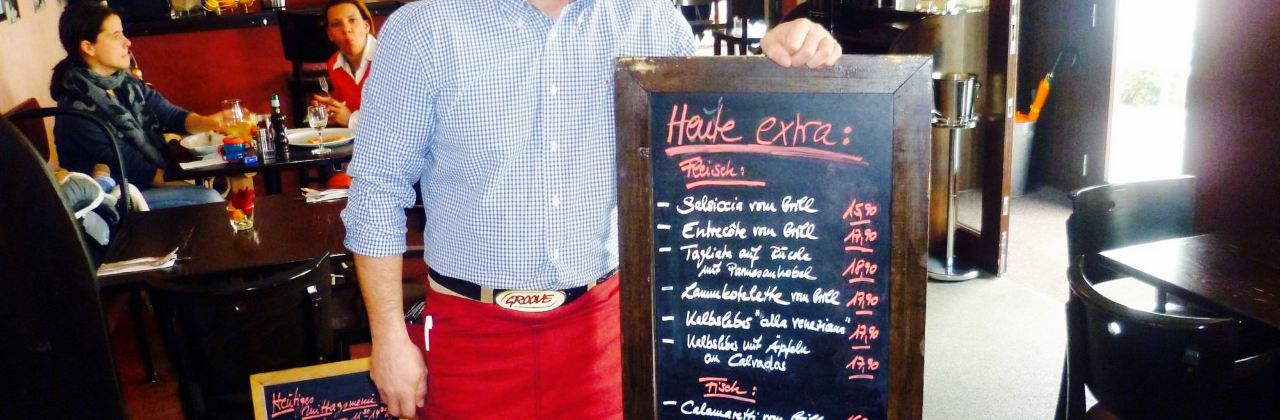 Heute extra:
Fleisch:
- Salsiccia vom Grill 15,90
- Entrecôte vom Grill 17,90
- Tagliata auf Rucola
mit Parmesanhobel 18,90
- Lammkotelette vom Grill 17,90
- Kalbsleber "alla veneziana" 17,90
- Kalbsleber mit Äpfeln
an Calvados 17,90
Fisch:
- Calamaretti vom Grill
GROOVE
Heutiges
Mittagsmenü